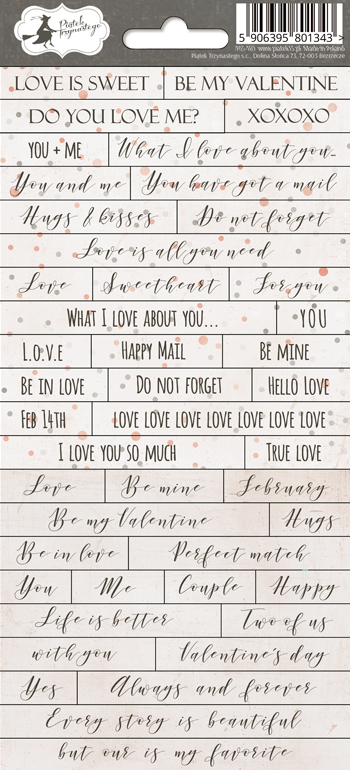 Piątek Trzynastego
5 906395 801343 >
www.piatek13.pl Made in Poland
Piątek Trzynastego s.c., Dolina Słońca 73, 72-003 Brzeźcze
LOVE IS SWEET BE MY VALENTINE
DO YOU LOVE ME? XOXOXO
YOU + ME What I love about you...
You and me You have got a mail
Hugs & kisses Do not forget
Love is all you need
Love Sweetheart For you
WHAT I LOVE ABOUT YOU... YOU
L.O.V.E HAPPY MAIL BE MINE
BE IN LOVE DO NOT FORGET HELLO LOVE
FEB 14TH LOVE LOVE LOVE LOVE LOVE LOVE LOVE
I LOVE YOU SO MUCH TRUE LOVE
Love Be mine February
Be my Valentine Hugs
Be in love Perfect match
You Me Couple Happy
Life is better Two of us
with you Valentine's day
Yes Always and forever
Every story is beautiful
but our is my favorite